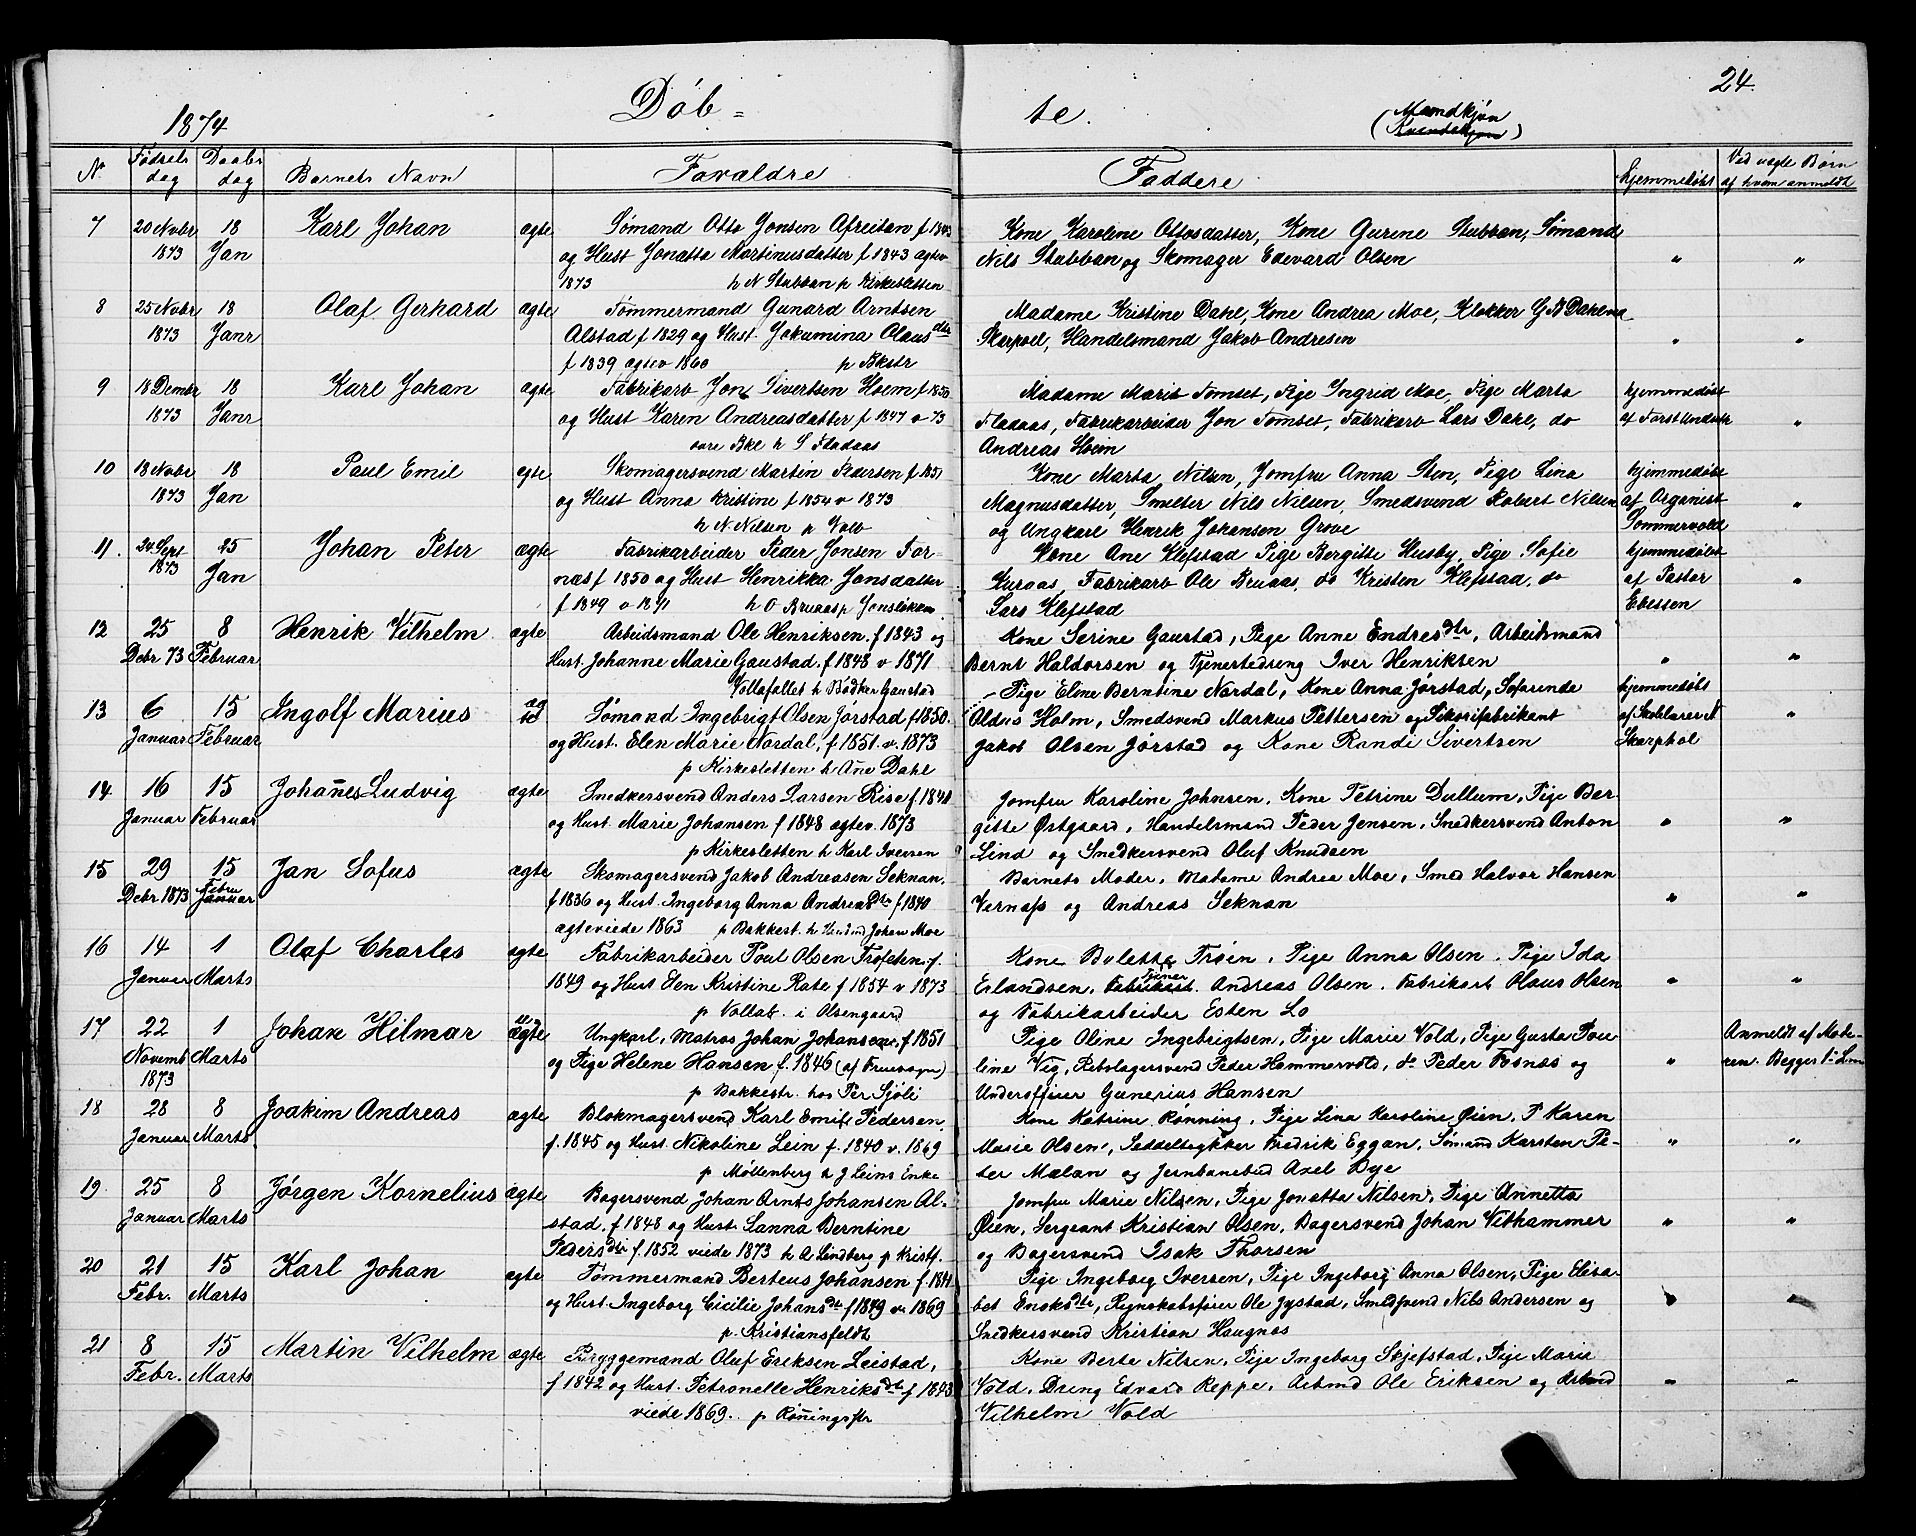 1874 Døb= te. Mandkjøn 24.
(Kvindekjøn)
No Fødsels dag Daabs dag Barnets Navn Forældre Faddere hjemmedøbt Ved uægte Børn af hvem anmeldt
7 20 Novbr 18 Karl Johan ægte Sømand Otto Jonsen Afreitan f 1843 Kone Karoline Ottosdatter, Kone Gurine Stubban, Sømand
1873 Jan og Hust Jonatta Martinusdatter f 1843 ægtev Nils Stubban og Skomager Edevard Olsen " "
1873 h N Stubban p Kirkesletten
8 25 Novbr 18 Olaf Gerhard ægte Tømmermand Gunard Arntsen Madame Kristine Dahl, Kone Andrea Moe, Klokker G
1873 Janr Alstad f 1829 og Hust. Jokumina Olausdtr Skarpvel, Handelsmand Jakob Andresen " "
f 1839 ægtev 1860 p Bkstr
9 18 Dembr 18 Karl Johan ægte Fabrikarb Jon Sivertsen Hoem f 1850 Madame Marit Tomset, Pige Ingrid Moe, Pige Marta hjemmedøbt
1873 Janr og Hust Karen Andreasdatter f 1847 v 73 Fladaas, Fabrikarbeider Jon Tomset, Fabrikarb Lars Dahl, do af "
øvre Bkl h S Fladaas Andreas Hoem
10 18 Novbr 18 Paul Emil egte Skomagersvend Martin Pedersen f 1851 Kone Marta Nilsen, Jomfru Anna Sten, Pige Lina hjemmedøbt
1873 Jan og Hust Anna Kristine f 1854 v 1873 Magnusdatter, Smelter Nils Nilsen, Smedsvend Robert Nilsen af Organist "
h N. Nilsen p Volb og Ungkarl Henrik Johansen Grove Sommervold
11. 24 Sept 25 Johan Peter ægte Fabrikarbeider Peder Jonsen For- Kone Ane Klefstad Pige Bergitte Husby, Pige Sofie hjemmedøbt
1873 Jan næs f 1850 og Hust Henrikka Jonsdatter Kuraas, Fabrikarb Ole Bruaas, do Kristen Klefstad, do af Pastor "
f 1849 v 1871 h O Bruaas p Jonsløkken Lars Klefstad Ebessen
12 25 8 Henrik Vilhelm ægte Arbeidsmand Ole Henriksen. f 1843 og Kone Serine Gaustad, Pige Anne Endresdtr, Arbeidsmand
Debr. 73 Februar Hust. Johanne Marie Gaustad. f 1848 v 1871 Bernt Haldorsen og Tjenestedreng Iver Henriksen " "
Vollafallet h Bødker Gaustad
13 6 15 Ingolf Marius Sømand Ingebrigt Olsen Jørstad f 1850. Pige Eline Berntine Nordal, Kone Anna Jørstad, Sofarende hjemmedøbt
Januar Februar og Hust. Elen Marie Nordal, f 1851. v. 1873 Aldus Holm, Smedsvend Markus Pettersen og Sikorifabrikant af Skolelærer "
p Kirkesletten h Ane Dahl Jakob Olsen Jørstad og Kone Randi Sivertsen Skarphol
14 16 15 Johañes Ludvig ægte Snedkersvend Anders Larsen Rise f. 1841 Jomfru Karoline Johnsen, Kone Petrine Dullum, Pige Ber-
Januar Februar og Hust. Marie Johansen f 1848 ægtev. 1873 gitte Østgaard, Handelsmand Peder Jensen, Snedkersvend Anton " "
p Kirkesletten h Karl Iversen Lind og Snedkersvend Oluf Knudsen
15 29 15 Jan Sofus ægte Skomagersvend Jakob Andreasen Seknan. Barnets Moder, Madame Andrea Moe, Smed Halvor Hansen
Debr. 1873 Febru Januar f 1836 og Hust. Ingeborg Anna Andreasdtr f 1840 Vernæs og Andreas Seknan " "
ægteviede 1863 p Bakkest. h Johan Moe
16 14 1 Olaf Charles ægte Fabrikarbeider Poul Olsen Trosehn. f. Kone Boletta Trøen, Pige Anna Olsen, Pige Ida
Januar Marts 1849 og Hust Elen Kristine Rate f 1854 v 1873 Erlandsen, Fabrikart Tjener Andreas Olsen. Fabrikarb Olaus Olsen " "
p Vollab. i Olsengaard og Fabrikarbeider Esten Lo
17 22 1 Johan Hilmar uægte Ungkarl, Matros Johan Johansen, f 1851 Pige Oline Ingebrigtsen, Pige Marie Vold, Pige Gusta Pau- Anmeldt af Mode-
Novemb Marts og Pige Helene Hansen f. 1846 line Vig, Rebslagersvend Peder Hammervold, do Peder Fosnæs og " ren. Begges 1ste
1873 p Bakkestr. hos Per Sjøli Underofficer Gunerius Hansen
18 28 8 Joakim Andreas ægte Blokmagersvend Karl Emil Pedersen. Kone Katrine Rønning, Pige Lina Karoline Øien, P Karen
Januar Marts f. 1845 og Hust. Nikoline Lein f. 1840 v. 1869 Marie Olsen, Seddeltrykker Fredrik Eggan, Sømand Karsten Pe- " "
p Møllenberg h J Leins Enke ter Mælan og Jernbanebud Axel Bye
19. 25 8 Jørgen Kornelius ægte Bagersvend Johan Arnts Johansen Al- Jomfru Marie Nilsen, Pige Jonatta Nilsen, Pige Annetta
Januar Marts stad. f 1848 og Hust. Sanna Berntine Øien, Sergeant Kristian Olsen, Bagersvend Johan Vithammer " "
Pedersdtr f. 1852 viede 1873 h A Lindberg p Kristf. og Bagersvend Isak Thorsen
20 21 15 Karl Johan ægte Tømmermand Berteus Johansen f. 1841. Pige Ingeborg Iversen, Pige Ingeborg Anna Olsen, Pige Elisa-
Febr. Marts og Hust. Ingeborg Cicilie Johansdtr f 1849 v. 1869 bet Enoksdtr, Regnskabsfører Ole Jystad, Smedsvend Nils Andersen og " "
p. Kristiansfeldt Snedkersvend Kristian Haugnæs
21 8 15 Martin Vilhelm ægte Bryggemand Oluf Eriksen Leistad, Kone Berte Nilsen, Pige Ingeborg Skjefstad, Pige Marie
Febr. Marts f 1842 og Hust. Petronelle Henriksdtr f 1843 Vold, Dreng Edvard Reppe, Arbmd Ole Eriksen og Arbmd " "
viede 1869. p Røningsstr Vilhelm Vold